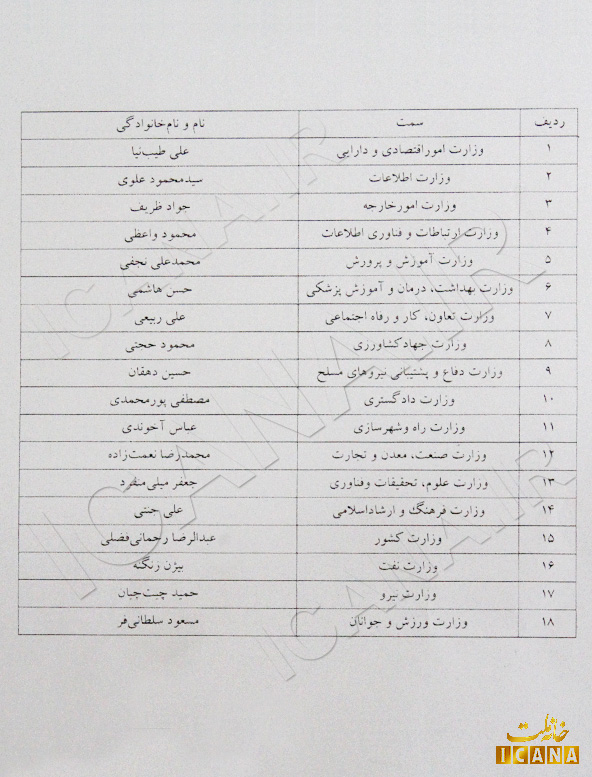 ردیف سمت نام و نام‌خانوادگی
۱ وزارت اموراقتصادی و دارایی علی طیب‌نیا
۲ وزارت اطلاعات سیدمحمود علوی
۳ وزارت امورخارجه جواد ظریف
۴ وزارت ارتباطات و فناوری اطلاعات محمود واعظی
۵ وزارت آموزش و پرورش محمدعلی نجفی
۶ وزارت بهداشت، درمان و آموزش پزشکی حسن هاشمی
۷ وزارت تعاون، کار و رفاه اجتماعی علی ربیعی
۸ وزارت جهادکشاورزی محمود حجتی
۹ وزارت دفاع و پشتیبانی نیروهای مسلح حسین دهقان
۱۰ وزارت دادگستری مصطفی پورمحمدی
۱۱ وزارت راه وشهرسازی عباس آخوندی
۱۲ وزارت صنعت، معدن و تجارت محمدرضا نعمت‌زاده
۱۳ وزارت علوم، تحقیقات وفناوری جعفر میلی‌منفرد
۱۴ وزارت فرهنگ و ارشاداسلامی علی جنتی
۱۵ وزارت کشور عبدالرضا رحمانی‌فضلی
۱۶ وزارت نفت بیژن زنگنه
۱۷ وزارت نیرو حمید چیت‌چیان
۱۸ وزارت ورزش و جوانان مسعود سلطانی‌فر
ICANA.IR
ICANA.IR
ICANA.IR
خانه ملت
ICANA